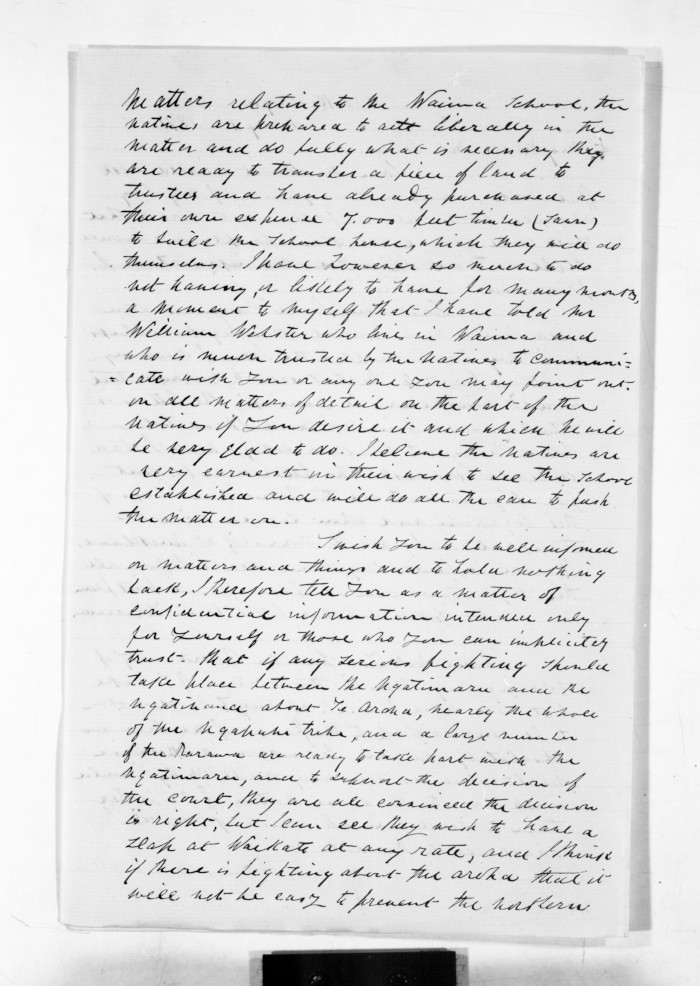 matters relating to the Waima School, the
natives are prepared to act liberally in the
matter and do fully what is necessary they
are ready to transfer a piece of land to
trustees and have already purchased at
their own expence 7.000 feet timber (Sawn)
to build the School house, which they will do
themselves. I have however so much to do
not having, or likely to have for many months,
a moment to myself that I have told Mr
William Webster who lives in Waima and
who is much trusted by the Natives to communi=
=cate with You or any one You may point out.
on all matters of detail on the part of the
Natives if You desire it and which he will
be very glad to do. I believe the Natives are
very earnest in their wish to see the School
established and will do all the can to push
the matter on.
I wish You to be well informed
on matters and things and to hold nothing
back, I therefore tell You as a matter of
confidential information intended only
for Yourself or those who You can implicitly
trust- that if any serious fighting should
take place between the Ngatimaru and the
Ngatihaua about Te Aroha, nearly the whole
of the Ngapuhi tribe, and a large number
of the Rarawa are ready to take part with the
Ngatimaru, and to support the decision of
the court, they are all convinced the decision
is right, but I can see they wish to have a
slap at Waikato at any rate, and I think
if there is fighting about the aroha that it
will not be easy to prevent the northern